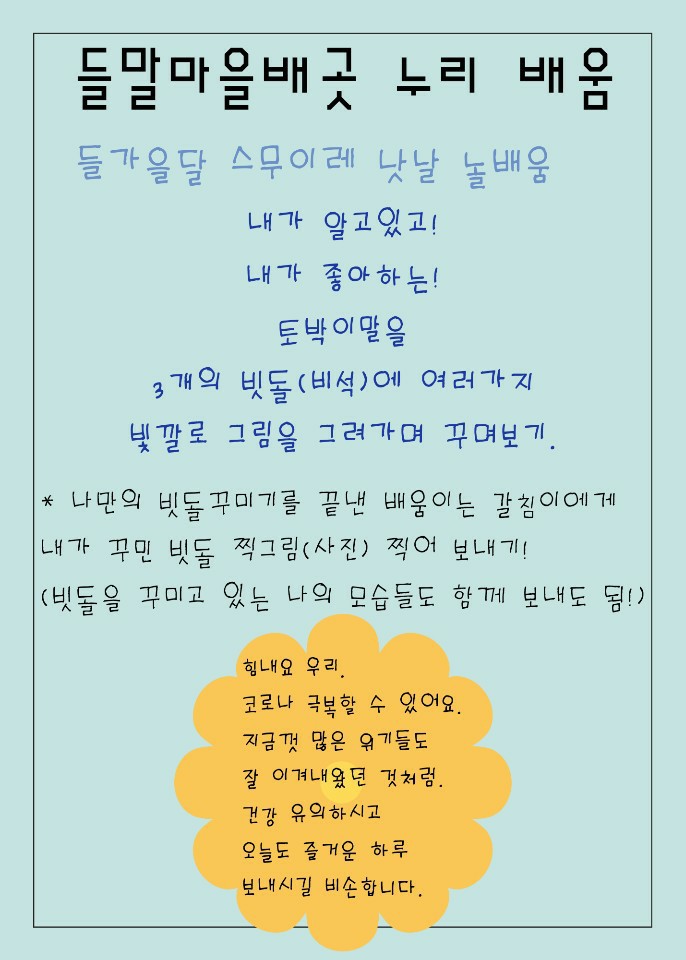 들말마을배곳 누리 배움
들가을달 스무이레 낫날 놀배움
내가 알고있고!
내가 좋아하는!
토박이말을
3개의 빗돌(비석)에 여러가지
빛깔로 그림을 그려가며 꾸며보기.
* 나만의 빗돌꾸미기를 끝낸 배움이는 갈침이에게
내가 꾸민 빗돌 찍그림(사진) 찍어 보내기!
(빗돌을 꾸미고 있는 나의 모습들도 함께 보내도 됨!)
힘내요 우리.
코로나 극복할 수 있어요.
지금껏 많은 위기들도
잘 이겨내왔던 것처럼.
건강 유의하시고
오늘도 즐거운 하루
보내시길 비손합니다.